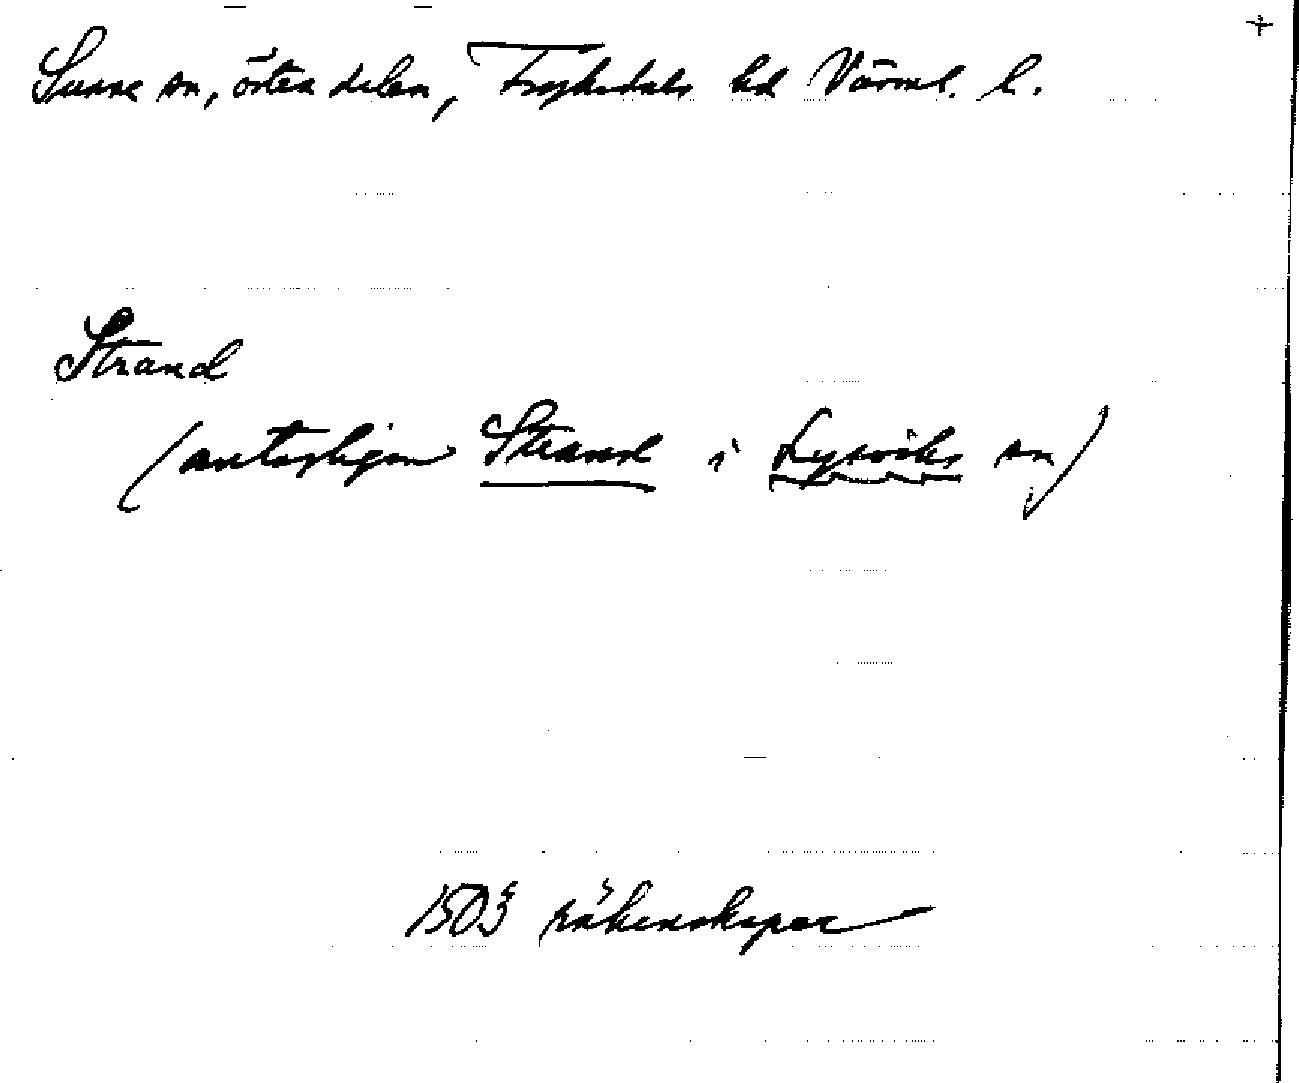 +
Sunne sn, östra delen, Fryksdals hd Värml. l.
Strand
(antagligen Strand i Lysviks sn)
1503 räkenskaper